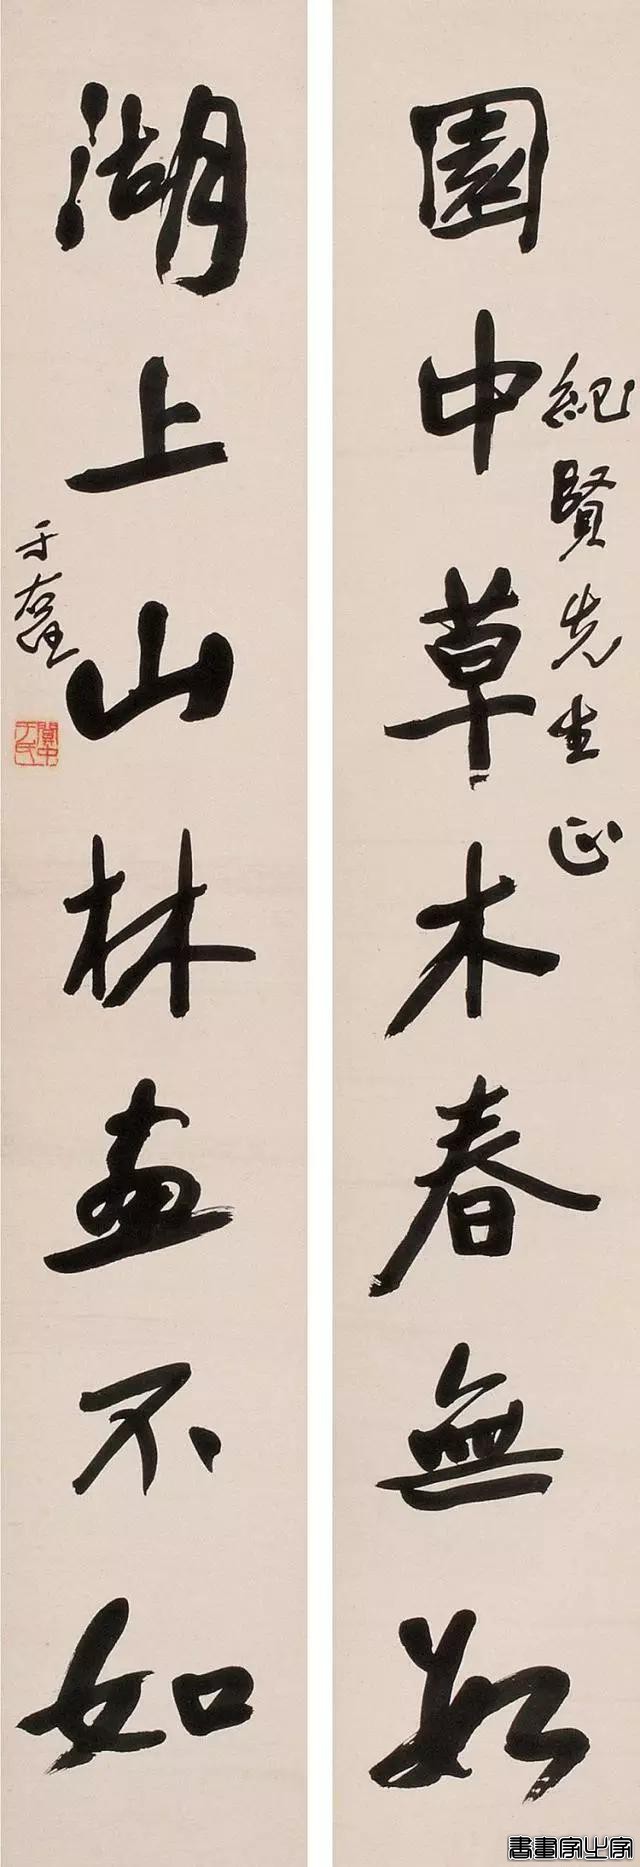 紀賢先生正
園中草木春無數
湖上山林畫不如
于右任
關中于氏
書畫家之家